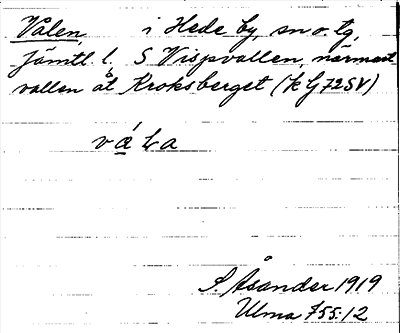 Vålen, i Hede by, sn o. tg,
Jämtl. l. S Vispvallen, närmast
vallen åt Kroksberget (k G72SV)
S. Åsander 1919
Ulma 755:12